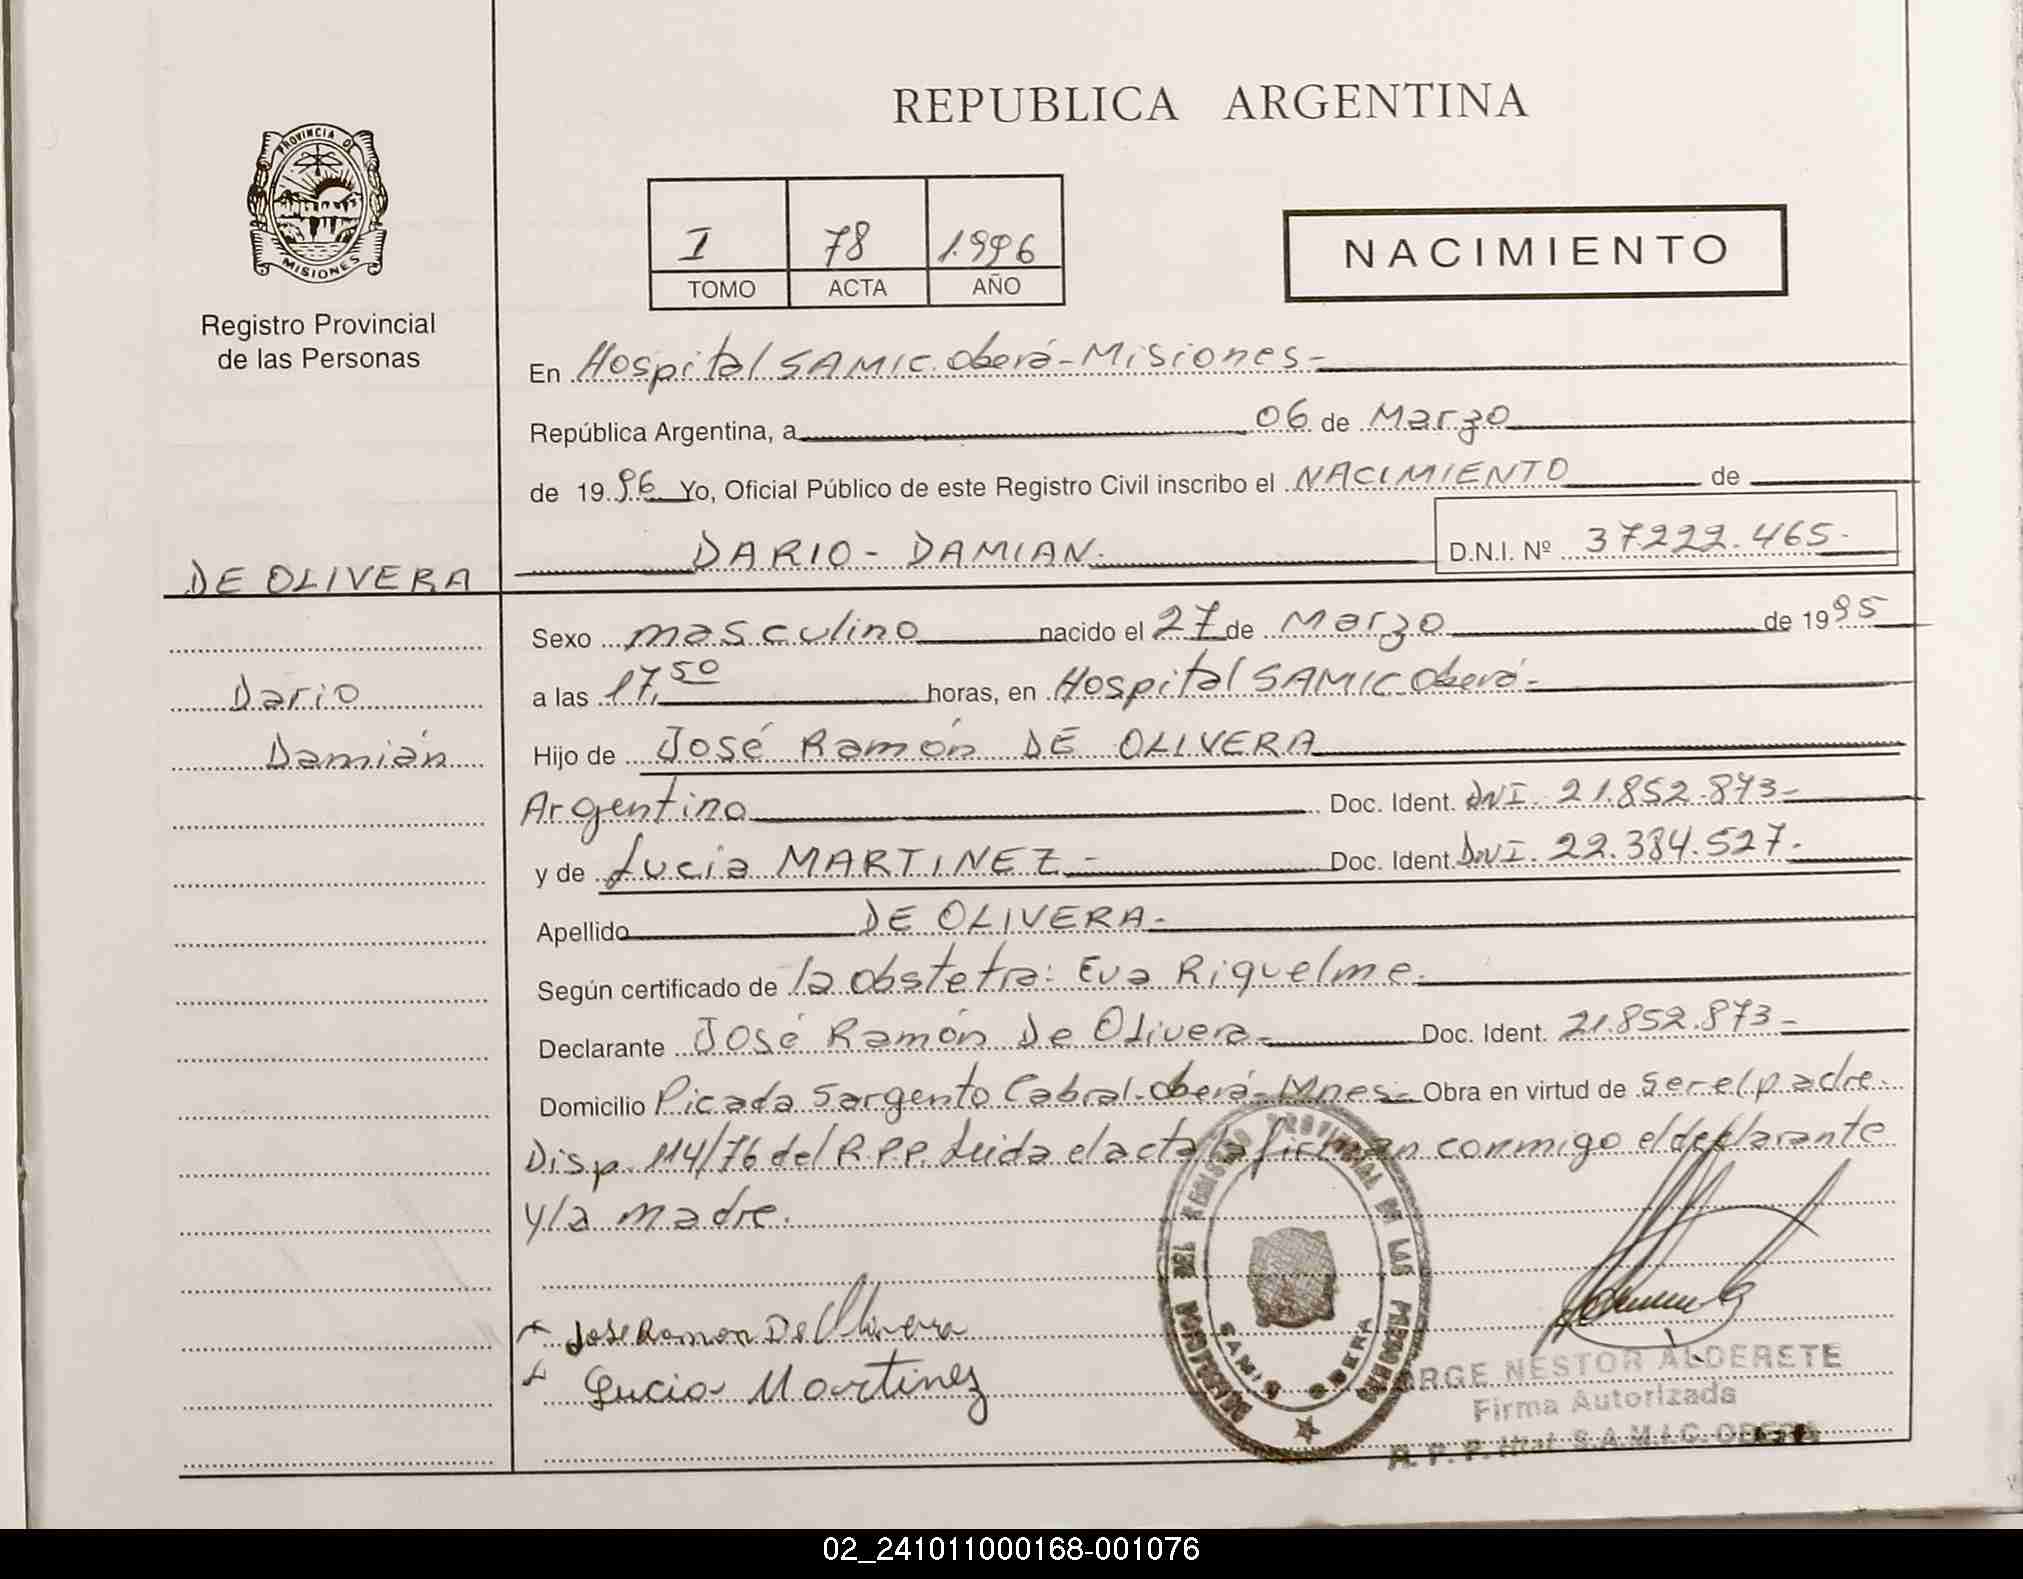 REPUBLICA ARGENTINA
PROVINCIA DE
MISIONES
Registro Provincial
de las Personas
I 78 1.996
TOMO ACTA AÑO
NACIMIENTO
En Hospital SAMIC. Oberá - Misiones -
República Argentina, a 06 de Marzo
de 19 96 Yo, Oficial Público de este Registro Civil inscribo el NACIMIENTO de
DARIO - DAMIAN. D.N.I. Nº 37222.465.-
DE OLIVERA
Sexo masculino nacido el 27 de Marzo de 1995
Dario
a las 17,50 horas, en Hospital SAMIC Oberá -
Damián
Hijo de José Ramón DE OLIVERA
Argentino Doc. Ident. DNI. 21.852.873-
y de Lucia MARTINEZ - Doc. Ident. DNI. 22.384.527.-
Apellido DE OLIVERA -
Según certificado de la obstetra: Eva Riquelme.
Declarante José Ramón De Olivera - Doc. Ident. 21.852.873 -
Domicilio Picada Sargento Cabral - Oberá - Mnes - Obra en virtud de ser el padre.
Disp. 114/76 del R.P.P. Leida el acta la firman conmigo el declarante
y la madre.
Jose Ramon De Olivera
Lucia Martinez
REGISTRO PROVINCIAL DE LAS PERSONAS
SAMIC OBERA
JORGE NESTOR ALDERETE
Firma Autorizada
R. P. P. Htal. S.A.M.I.C. OBERA
02_241011000168-001076